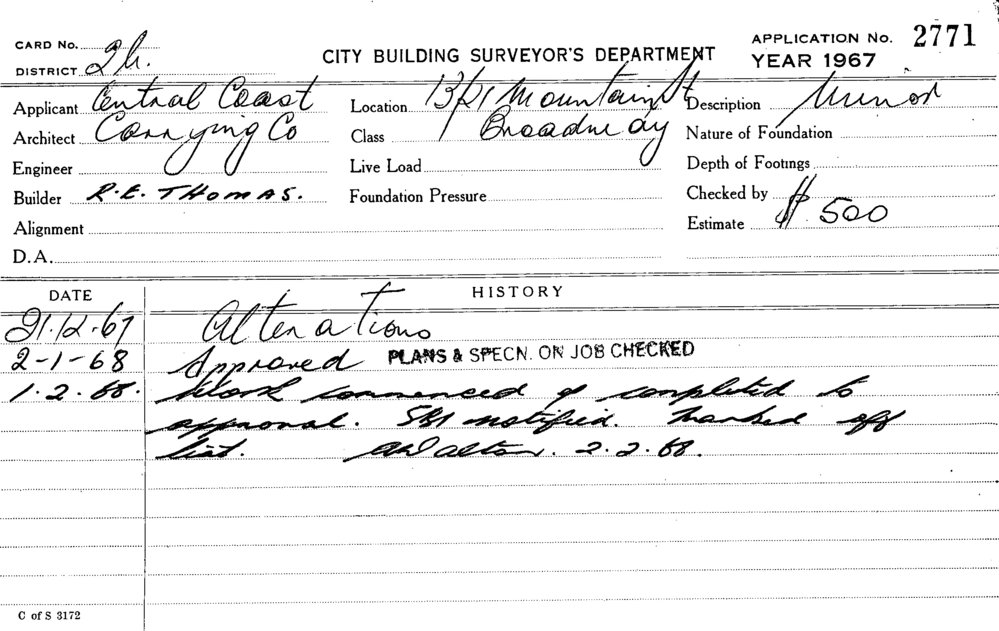 CARD No. 2h.
DISTRICT
CITY BUILDING SURVEYOR'S DEPARTMENT
APPLICATION No. 2771
YEAR 1967
Applicant Central Coast Location Mountain St Description Minor
Architect Carrying Co Class Broadway Nature of Foundation
Engineer Live Load Depth of Footings
Builder R.E. THOMAS. Foundation Pressure Checked by
Alignment Estimate $ 500
D.A.
DATE HISTORY
21.12.67 Alterations
2-1-68 Approved PLANS & SPECN. ON JOB CHECKED
1.2.68. Work commenced & completed to
approval. notified. Marked off
list. 2.2.68.
C of S 3172